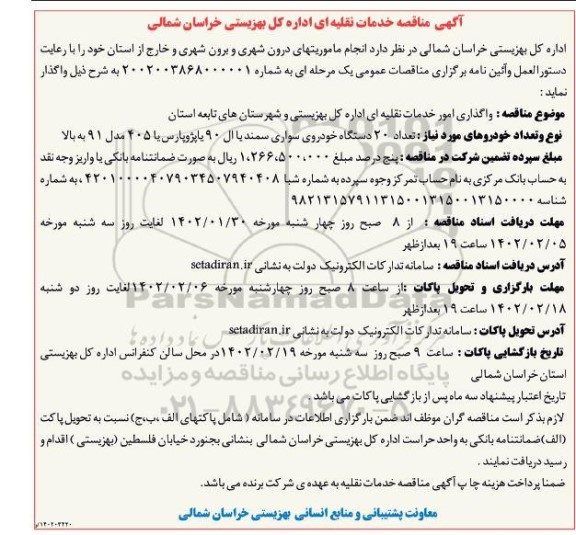 آگهی مناقصه خدمات نقلیه ای اداره کل بهزیستی خراسان شمالی
اداره کل بهزیستی خراسان شمالی در نظر دارد انجام ماموریتهای درون شهری و برون شهری و خارج از استان خود را با رعایت
دستورالعمل وآئین نامه برگزاری مناقصات عمومی یک مرحله ای به شماره ۲۰۰۲۰۰۳۸۶۸۰۰۰۰۰۱ به شرح ذیل واگذار
نماید :
موضوع مناقصه : واگذاری امور خدمات نقلیه ای اداره کل بهزیستی و شهرستان های تابعه استان
نوع وتعداد خودروهای مورد نیاز : تعداد ۲۰ دستگاه خودروی سواری سمند یا ال ۹۰ یاپژوپارس یا ۴۰۵ مدل ۹۱ به بالا
مبلغ سپرده تضمین شرکت در مناقصه : پنج درصد مبلغ ۱,۲۶۶,۵۰۰,۰۰۰ ریال به صورت ضمانتنامه بانکی یا واریز وجه نقد
به حساب بانک مرکزی به نام حساب تمرکز وجوه سپرده به شماره شبا ۴۲۰۱۰۰۰۰۴۰۷۹۰۳۴۵۰۷۹۴۰۴۰۸ ، به شماره
شناسه ۹۸۲۱۳۱۵۷۹۱۱۳۱۵۰۰۱۳۱۵۰۰۱۳۱۵۰۰۰۰
مهلت دریافت اسناد مناقصه : از ۸ صبح روز چهار شنبه مورخه ۱۴۰۲/۰۱/۳۰ لغایت روز سه شنبه مورخه
۱۴۰۲/۰۲/۰۵ ساعت ۱۹ بعدازظهر
آدرس دریافت اسناد مناقصه : سامانه تدارکات الکترونیک دولت به نشانی setadiran.ir
مهلت بارگزاری و تحویل پاکات :از ساعت ۸ صبح روز چهارشنبه مورخه ۱۴۰۲/۰۲/۰۶لغایت روز دو شنبه
۱۴۰۲/۰۲/۱۸ ساعت ۱۹ بعدازظهر
آدرس تحویل پاکات : سامانه تدارکات الکترونیک دولت به نشانی setadiran.ir
تاریخ بازگشایی پاکات : ساعت ۹ صبح روز سه شنبه مورخه ۱۴۰۲/۰۲/۱۹در محل سالن کنفرانس اداره کل بهزیستی
استان خراسان شمالی
تاریخ اعتبار پیشنهاد سه ماه پس از بازگشایی پاکات می باشد .
لازم بذکر است مناقصه گران موظف اند ضمن بارگزاری اطلاعات در سامانه ( شامل پاکتهای الف ،ب،ج) نسبت به تحویل پاکت
(الف)ضمانتنامه بانکی به واحد حراست اداره کل بهزیستی خراسان شمالی بنشانی بجنورد خیابان فلسطین (بهزیستی ) اقدام و
رسید دریافت نمایند .
ضمنا پرداخت هزینه چاپ آگهی مناقصه خدمات نقلیه به عهده ی شرکت برنده می باشد.
معاونت پشتیبانی و منابع انسانی بهزیستی خراسان شمالی
۱۴۰۲۰۳۲۲۰/م
ParsNamadData
پایگاه اطلاع رسانی مناقصه و مزایده
۰۲۱-۸۸۳۴۹۶۷۰-۵